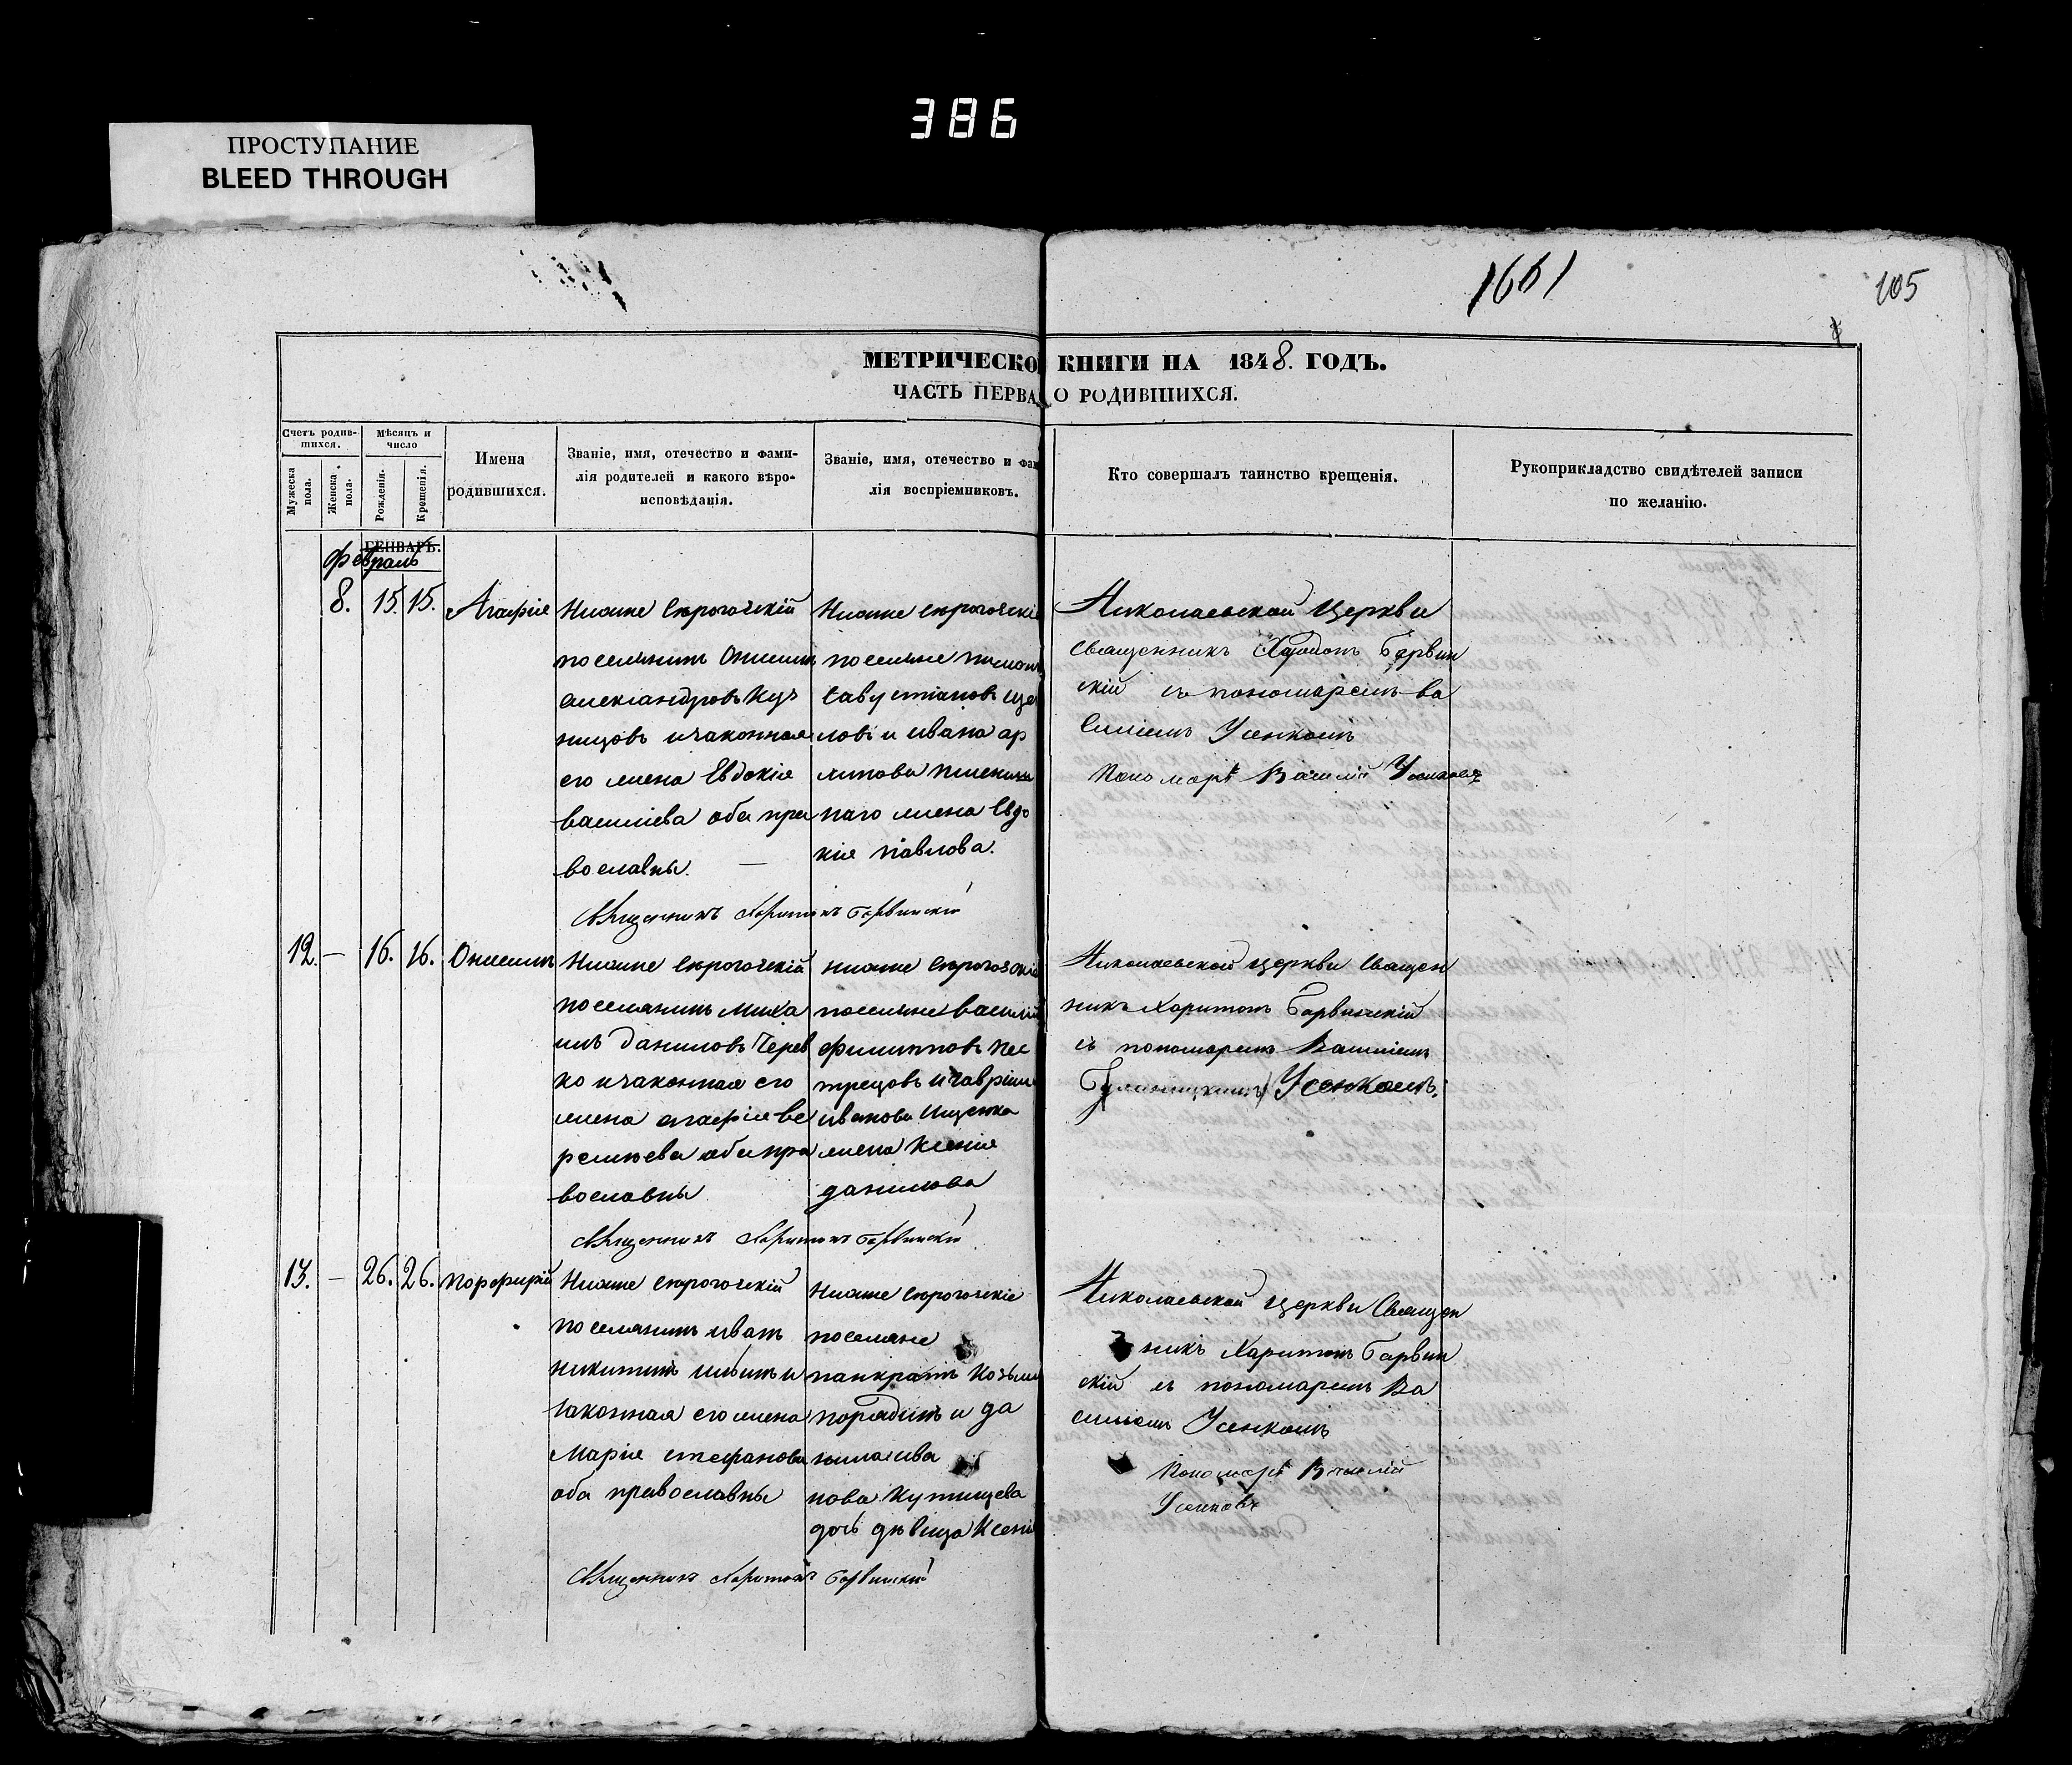 386
ПРОСТУПАНИЕ
BLEED THROUGH
1661
105
МЕТРИЧЕСКО КНИГИ НА 1848. ГОДЪ.
ЧАСТЬ ПЕРВА О РОДИВШИХСЯ.
Счетъ родив-
шихся.
Мужеска
пола.
Женска
пола.
Мѣсяцъ и
число
Рожденія.
Крещенія.
Имена
родившихся.
Званіе, имя, отечество и фами-
лія родителей и какого вѣро-
исповѣданія.
Званіе, имя, отечество и фам
лія воспріемниковъ.
Кто совершалъ таинство крещенія.
Рукоприкладство свидѣтелей записи
по желанію.
ГЕНВАРЬ.
Февраль
8. 15. 15. Агафія
Нижне Сѣрогозскій
поселянинъ Онисимъ
Александровъ Куз
нецовъ и законная
его жена Евдокія
Василіева оба пра
вославны.
Нижне Сѣрогозскіе
поселяне
и Ивана ар
хипова
наго жена Евдо
кія Павлова.
Николаевской Церкви
священникъ Харитонъ Барвин
скій съ пономаремъ Ва
силіемъ Усенкомъ
Пономарь Василій
Священникъ Харитонъ Барвинскій
12. — 16. 16. Онисимъ
Нижне Сѣрогозскій
поселянинъ Миха
илъ Даниловъ Черев
ко и законная его
жена Агафія Ве
ремѣева оба пра
вославны
нижне Сѣрогозскіе
поселяне Василій
Филипповъ Пес
трецовъ и Гавріила
Иванова Ищенка
жена Ксенія
Данилова
Николаевской церкви Священ
никъ Харитонъ Барвинскій
съ пономаремъ Василіемъ
Усенкомъ.
Священникъ Харитонъ Барвинскій
13. — 26. 26. Порфирій
Нижне Сѣрогозскій
поселянинъ Иванъ
Никитинъ и
законная его жена
Марія Стефанова
оба православны
Нижне Сѣрогозскіе
поселяне
Панкратъ Козьми
и Да
нила Ива
нова Кутищева
дочь дѣвица Ксені
Николаевской церкви Священ
никъ Харитонъ Барвин
скій съ пономаремъ Ва
силіемъ Усенкомъ
Пономарь Василій
Усенковъ
Священникъ Харитонъ Барвинскій